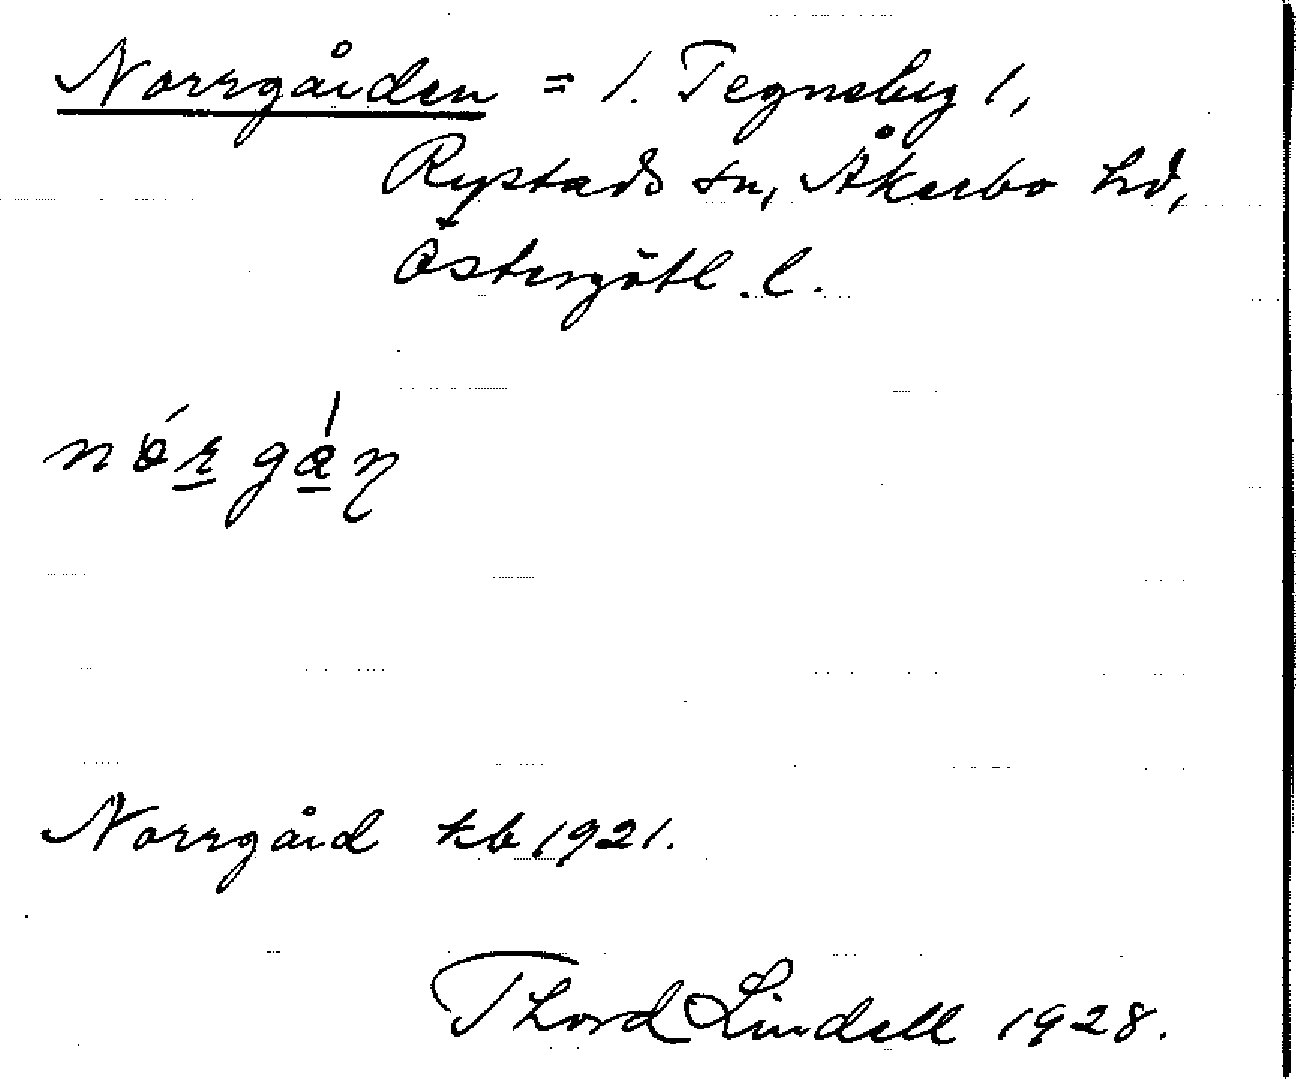 Norrgården = 1. Tegneby 1,
Rystads sn, Åkerbo hd,
Östergötl. l.
Norrgård kb 1921.
Thord Lindell 1928.